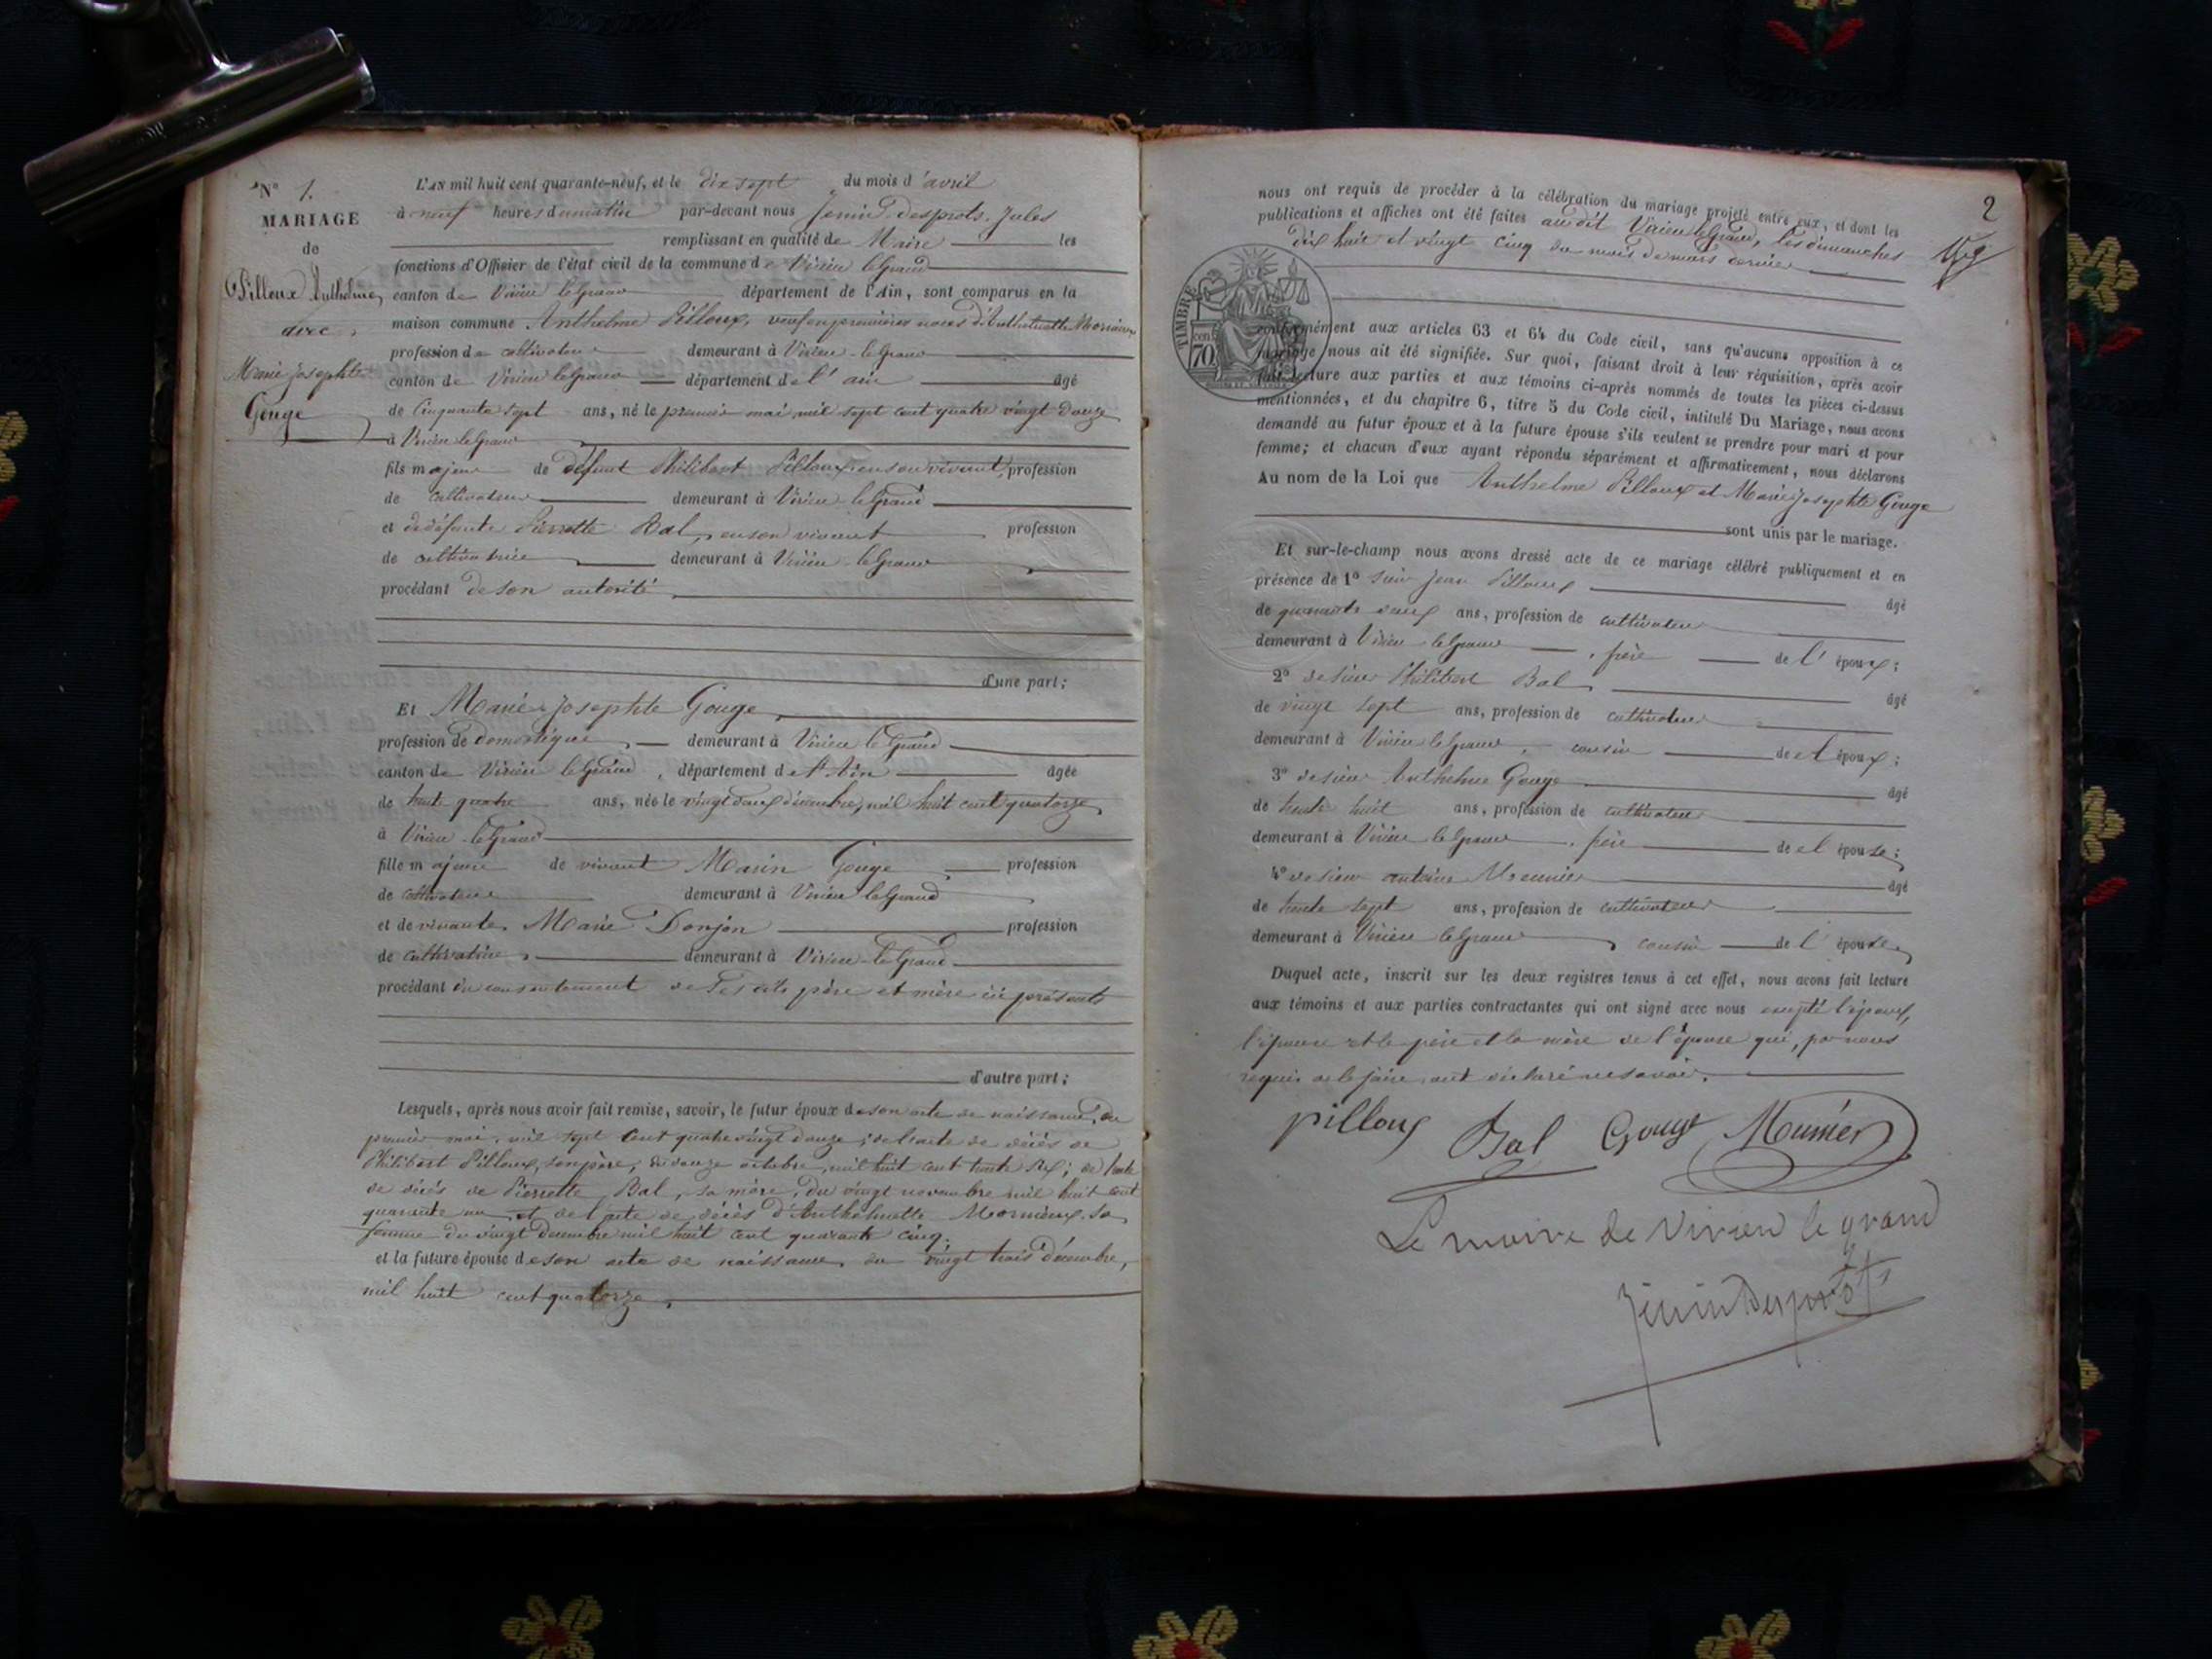 N° 1.
MARIAGE
de
Pilloux Anthelme,
avec
Marie Josephte
Gouge
L'AN mil huit cent quarante-neuf, et le dix sept du mois d'avril
à neuf heures du matin par-devant nous Jenin Desprots, Jules
remplissant en qualité de Maire les
fonctions d'Officier de l'état civil de la commune de Virieu le Grand
canton de Virieu le Grand département de l'Ain, sont comparus en la
maison commune Anthelme Pilloux, veuf en premières noces d'Anthelmette Mornieux
profession de cultivateur demeurant à Virieu-le Grand
canton de Virieu le Grand département de l'ain âgé
de Cinquante sept ans, né le premier mai mil sept cent quatre vingt douze
à Virieu le Grand
fils majeur de défunt Philibert Pilloux en son vivant, profession
de cultivateur demeurant à Virieu-le Grand
et de défunte Pierrette Bal, en son vivant profession
de cultivatrice demeurant à Virieu-le Grand
procédant de son autorité
d'une part;
Et Marie Josephte Gouge
profession de domestique demeurant à Virieu le Grand
canton de Virieu le Grand, département de l'Ain âgée
de trente quatre ans, née le vingt deux décembre, mil huit cent quatorze,
à Virieu-le Grand
fille majeure de vivant Marin Gouge profession
de cultivateur demeurant à Virieu le Grand
et de vivante Marie Donjon profession
de cultivatrice demeurant à Virieu-le Grand
procédant du consentement de ses dits père et mère ici présents
d'autre part;
Lesquels, après nous avoir fait remise, savoir, le futur époux de son acte de naissance, du
premier mai, mil sept cent quatre vingt douze; de l'acte de décès de
Philibert Pilloux, son père, du douze octobre, mil huit cent trente six; de l'acte
de décès de Pierrette Bal, sa mère, du vingt novembre mil huit cent
quarante un et de l'acte de décès d'Anthelmette Mornieux, sa
femme du vingt decembre mil huit cent quarante cinq.
et la future épouse de son acte de naissance, du vingt trois décembre,
mil huit cent quatorze
2
nous ont requis de procéder à la célébration du mariage projeté entre eux, et dont les
publications et affiches ont été faites audit Virieu le Grand, les dimanches
dix huit et vingt cinq du mois de mars dernier
TIMBRE
70 cen
conformément aux articles 63 et 64 du Code civil, sans qu'aucune opposition à ce
mariage nous ait été signifiée. Sur quoi, faisant droit à leur réquisition, après avoir
fait lecture aux parties et aux témoins ci-après nommés de toutes les pièces ci-dessus
mentionnées, et du chapitre 6, titre 5 du Code civil, intitulé Du Mariage, nous avons
demandé au futur époux et à la future épouse s'ils veulent se prendre pour mari et pour
femme; et chacun d'eux ayant répondu séparément et affirmativement, nous déclarons
Au nom de la Loi que Anthelme Pilloux et Marie Josephte Gouge
sont unis par le mariage.
Et sur-le-champ nous avons dressé acte de ce mariage célébré publiquement et en
présence de 1° sieur Jean Pilloux âgé
de quarante ans, profession de cultivateur
demeurant à Virieu-le Grand, frère de l'époux;
2° de sieur Philibert Bal âgé
de vingt sept ans, profession de cultivateur
demeurant à Virieu le Grand, cousin de l'époux;
3° de sieur Anthelme Gouge âgé
de trente huit ans, profession de cultivateur
demeurant à Virieu le Grand, frère de l'épouse;
4° de sieur antoine Meunier âgé
de trente sept ans, profession de cultivateur
demeurant à Virieu le Grand, cousin de l'épouse,
Duquel acte, inscrit sur les deux registres tenus à cet effet, nous avons fait lecture
aux témoins et aux parties contractantes qui ont signé avec nous excepté l'époux,
l'épouse et le père et la mère de l'épouse qui, par nous
requis de le faire, ont déclaré ne savoir.
pilloux Bal Gouge Munier
Le maire de Virieu le grand
Jenin Desprots